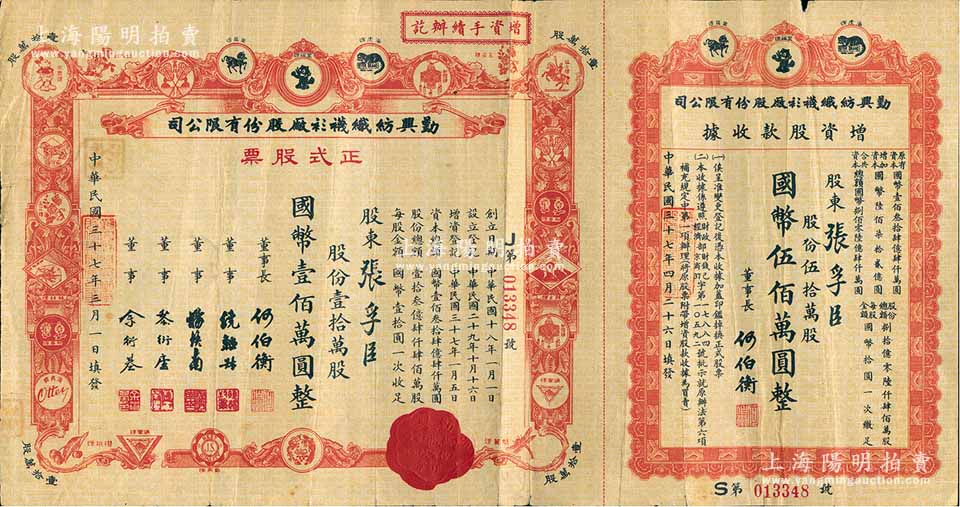 增資手續辦訖
壹拾萬股
壹拾萬股
勤興紡織襪衫廠股份有限公司
正式股票
創立日期中華民國十八年一月一日
設立登記中華民國二十九年十月十六日
增資登記中華民國三十七年一月五日
資本總額國幣壹百叁拾肆億肆仟萬圓
股份總額壹拾叁億肆仟肆佰萬股
每股金額國幣壹拾圓一次收足
股東張孚臣
股份壹拾萬股
國幣壹佰萬圓整
董事長 何伯衡
董事
董事
董事
董事
中華民國三十七年三月一日填發
J第013348號
Otter
壹拾萬股
壹拾萬股
勤興紡織襪衫廠股份有限公司
增資股款收據
原有資本國幣壹佰叁拾肆億肆仟萬圓
增加資本國幣陸佰柒拾貳億圓
合共資本總額國幣捌佰零陸億肆仟萬圓
股份總額捌拾億零陸仟肆佰萬股
每股金額國幣拾圓一次繳足
股東張孚臣
股份伍拾萬股
國幣伍佰萬圓整
董事長 何伯衡
(一)俟呈准變更登記後憑本收據加蓋印鑑掉換正式股票
(二)本收據係遵照財政部財錢乙字第一七八八四號批示就原辦法第六項
補充規定中第一項辦理將原股票附帶增資股款收據為買賣
中華民國三十七年四月二十六日填發
S第 013348 號
上海陽明拍賣
www.yangmingauction.com
上海陽明拍賣
www.yangmingauction.com
上海陽明拍賣
www.yangmingauction.com